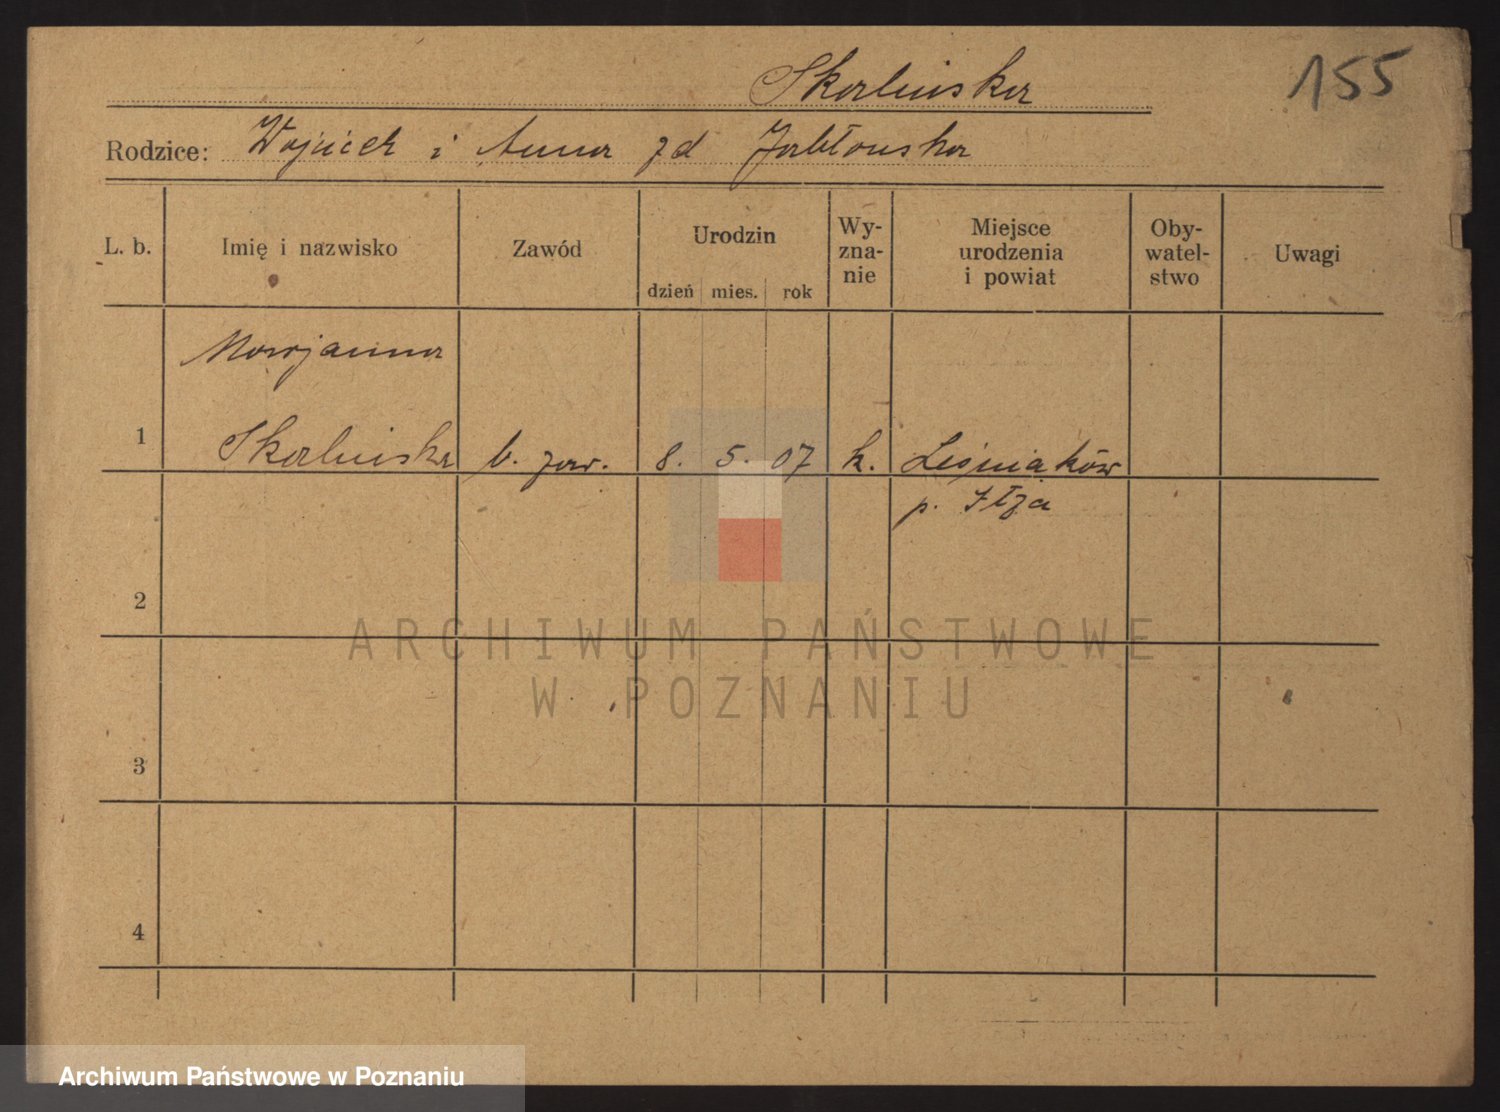 Skorlinska
155
Rodzice: Wojciech i Anna zd Jabłonska
L. b.
Imię i nazwisko
Zawód
Urodzin
dzień
mies.
rok
Wy-
zna-
nie
Miejsce
urodzenia
i powiat
Oby-
watel-
stwo
Uwagi
Marjanna
1 Skorlinska b. zaw. 8. 5. 07 k. Leśniaków
p. Iłża
2
3
4
ARCHIWUM PAŃSTWOWE
W POZNANIU
Archiwum Państwowe w Poznaniu